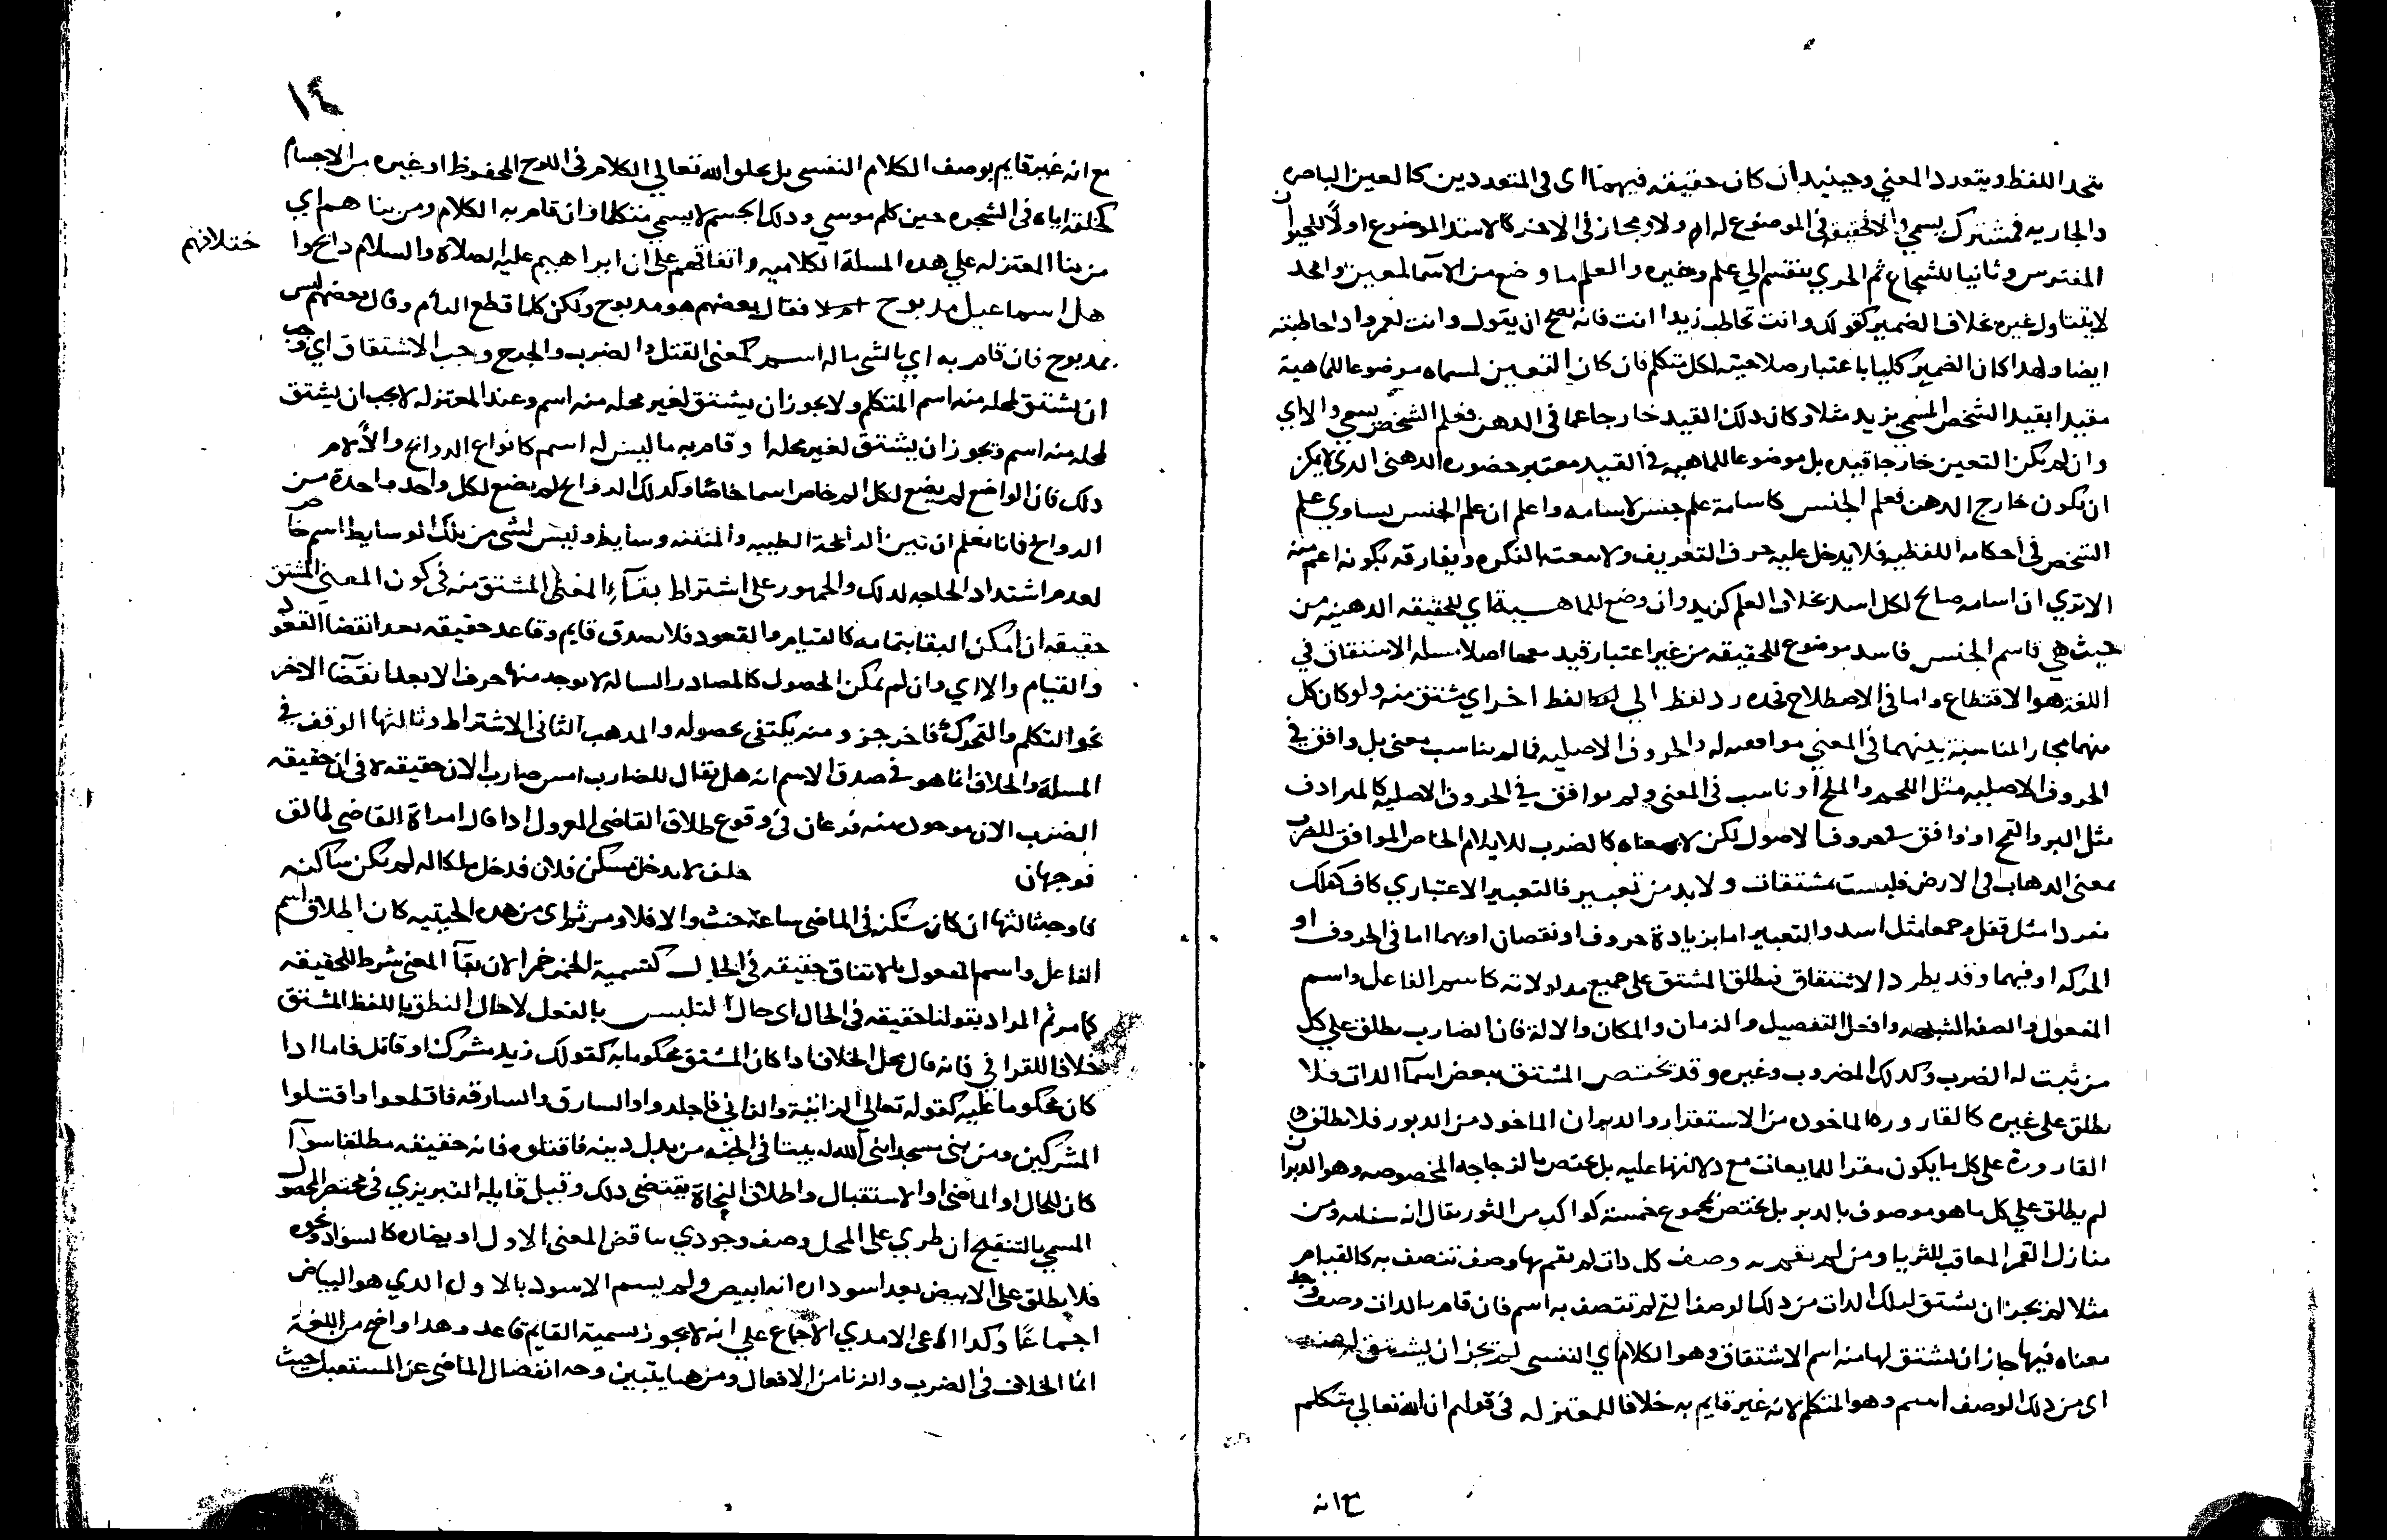 يتحد اللفظ ويتعدد المعني وحينيد ان كان حقيقه فيهما اى فى المتعددين كالعين الباصره
والجاريه فمشترك يسمي والا فحقيقه فى الموضوع له اولا ومجاز فى الاخر كالاسد الموضوع اولا للحيوان
المفترس وثانيا للشجاع ثم الجزي ينقسم الي علم وغيره والعلم ما وضع من الاسما لمعين واحد
لا يتناول غيره بخلاف الضمير كقولك وانت تخاطب زيدا انت فانه يصح ان يقول وانت لعمرو اذا خاطبته
ايضا ولهدا كان الضمير كليا باعتبار صلاحيته لكل متكلم فان كان التعين لمسماه موضوعا للماهية
مقيدا بقيد الشخص المسمي بزيد مثلا وكان دلك القيد خارجا عما فى الدهن فعلم الشخص والا اي
وان لم يكن التعين خارجا قيده بل موضوعا للماهيه فى القيد معتبر حضوره الدهنى الدى لا يمكن
ان تكون خارج الدهن فعلم الجنس كاسامة علم جنس لاسامه واعلم ان علم الجنس يساوي علم
الشخص فى احكامه اللفظيه فلا يدخل عليه حرف التعريف ولا بنعت النكره ويفارقه بكونه اعم منه
الا تري ان اسامه صالح لكل اسد بخلاف العلم كزيد وان وضع للماهسية اي للحقيقه الدهنيه من
حيث هي فاسم الجنس فاسد موضوع للحقيقه من غير اعتبار قيد معها اصلا مسله الاشتقاق في
اللغة هو الاقتطاع واما فى الاصطلاح فحده رد لفظ الي لفظ اخر اي يشتق منه ولو كان كل
منهما مجاز المناسبة بينهما فى المعني موافقه له والحروف الاصليه فما لم يناسب معنى بل وافق في
الحروف الاصليه مثل اللحم والملح او ناسب فى المعنى ولم يوافق في الحروف الاصلية كالمترادف
مثل البر والقمح او وافق فى حروف الاصول لكن لا بمعناه كالضرب للايلام الخاص الموافق للضرب
بمعنى الدهاب فى الارض فليست بمشتقات ولا بد من تعيير فالتعيير الاعتباري كاف كفلك
مفردا مثل قفل وجمعا مثل اسد والتعيير اما بزيادة حروف او نقصان او بهما اما فى الحروف او
الحركه او فيهما وقد يطرد الاشتقاق فيطلق المشتق على جميع مدلولاته كاسم الفاعل واسم
المفعول والصفه المشبهه وافعل التفصيل والزمان والمكان والالة فان الضارب يطلق علي كل
من ثبت له الضرب وكدلك المضروب وغيره وقد يختص المشتق ببعض اسما الدات فلا
يطلق على غيره كالقاروره الماخوده من الاستقرار والدبران الماخود من الدبور فلا تطلق
القارورة على كل ما يكون مقرا للمايعات مع دلالتها عليه بل يختص بالزجاجه المخصوصه وهو الدبران
لم يطلق علي كل ما هو موصوف بالدبور بل يختص بمجموع خمسة كواكب من الثور يقال انه سنامه ومن
منازل القمر المعاقب للثريا ومن لم يقم به وصف كل دات لم يقم بها وصف تتصف به كالقيام
مثلا لم يجز ان يشتق لتلك الدات من دلك الوصف التي لم تتصف به اسم فان قام بالدات وصف وجد
معناه فيها جاز ان يشتق لها منه اسم الاشتقاق وهو الكلام اي النفسى لم يجز ان يشتق لمن
اى من دلك الوصف اسم وهو المتكلم لانه غير قايم به خلافا للمعتزله فى قولهم ان الله تعالي متكلم
مع انه
١٤
مع انه غير قايم بوصف الكلام النفسى بل يخلو الله تعالي الكلام فى اللوح المحفوظ او غيره من الاجسام
كخلقه اياه فى الشجره حين كلم موسي ودلك الجسم لا يسمي متكلما وان قام به الكلام ومن بنا هم اي
من بنا المعتزله علي هده المسلة الكلاميه واتفاقهم على ان ابراهيم عليه الصلاة والسلام دابح وا
ختلافهم
هل اسماعيل مدبوح ام لا فقال بعضهم هو مدبوح ولكن كلما قطع التام وقال بعضهم ليس
بمدبوح فان قام به اي بالشى ما له اسم كمعنى القتل والضرب والجرح وجب الاشتقاق اي وجب
ان يشتق لمحله منه اسم المتكلم ولا يجوز ان يشتق لغير محله منه اسم وعند المعتزله لا يجب ان يشتق
لمحله منه اسم ويجوز ان يشتق لغير محله او قام به ما ليس له اسم كانواع الروايح والالام
دلك فان الواضع لم يضع لكل الم خاص اسما خاصا وكدلك الروايح لم يضع لكل واحد واحدة من
الروايح فانا نعلم ان بين الرايحة الطيبه والمنتنه وسايط وليس لشى من تلك الوسايط اسم خاص
لعدم اشتداد الحاجه لدلك والجمهور على اشتراط بقاء المعنى المشتق منه فى كون المعنى المشتق
حقيقه ان امكن البقا بتمامه كالقيام والقعود فلا يصدق قايم وقاعد حقيقه بعد انقضا القعود
والقيام والا اي وان لم يمكن الحصول كالمصادر السيالة لا يوجد منها حرف الا بعد انقضا الاخر
نحو التكلم والتحرك فاخر جزو منه يكتفى بحصوله والمدهب الثانى الاشتراط وثالثها الوقف في
المسلة والخلاف انما هو في صدق الاسم انه هل يقال للضارب امس ضارب الان حقيقه لا فى ان حقيقه
الضرب الان موجوده منه فرعان فى وقوع طلاق القاضى المعزول ادا قال امراة القاضى طالق
فوجهان حلف لا يدخل مسكن فلان فدخل ملكا له لم يكن ساكنه
فاوجه ثالثها ان كان سكنه فى الماضى ساعة حنث والا فلا ومن ثم اى من هده الحيثيه كان اطلاق اسم
الفاعل واسم المفعول بالاتفاق حقيقه فى الحال كتسمية الخمر خمرا لان بقا المعنى شرط للحقيقه
كما مر ثم المراد بقولنا حقيقه فى الحال اى حال التلبس بالفعل لا حال النطق باللفظ المشتق
خلافا للقرافي فانه قال محل الخلاف ادا كان المشتق محكوما به كقولك زيد مشرك او قاتل فاما ادا
كان محكوما عليه كقوله تعالي الزانية والزاني فاجلدوا والسارق والسارقه فاقطعوا واقتلوا
المشركين ومن بنى مسجدا بنى الله له بيتا فى الجنه من بدل دينه فاقتلوه فانه حقيقه مطلقا سوا
كان للحال او الماضى او الاستقبال واطلاق النحاة يقتضى دلك وقيل قايله التبريزي فى مختصر المحصول
المسمي بالتنقيح ان طري على المحل وصف وجودي يناقض المعنى الاول او يضاده كالسواد ونحوه
فلا يطلق على الابيض بعد اسوداده انه ابيض ولم يسم الاسود بالاول الدي هو البياض
اجماعا وكدا ادعى الامدي الاجماع علي انه لا يجوز تسمية القايم قاعد وهدا واضح من اللغة
انما الخلاف فى الضرب والزنا من الافعال ومن هنا يتبين وجه انفصال الماضى عن المستقبل حيث